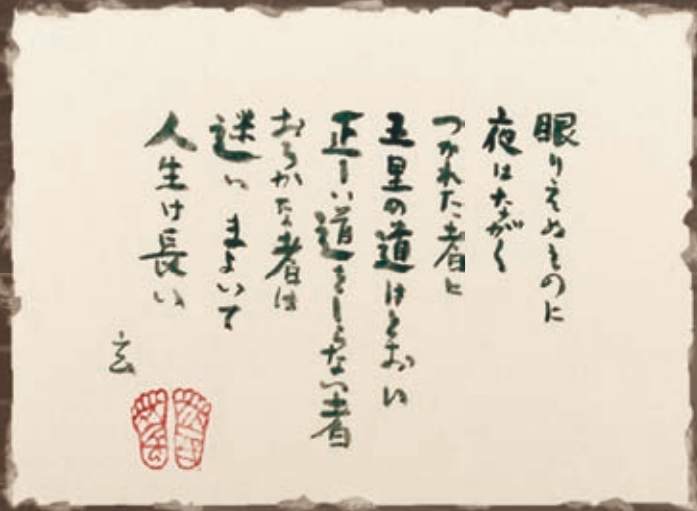 眠りえぬものに
夜はながく
つかれた者に
五里の道はとおい
正しい道をしらない者
おろかな者は
迷いまよいて
人生は長い
玄